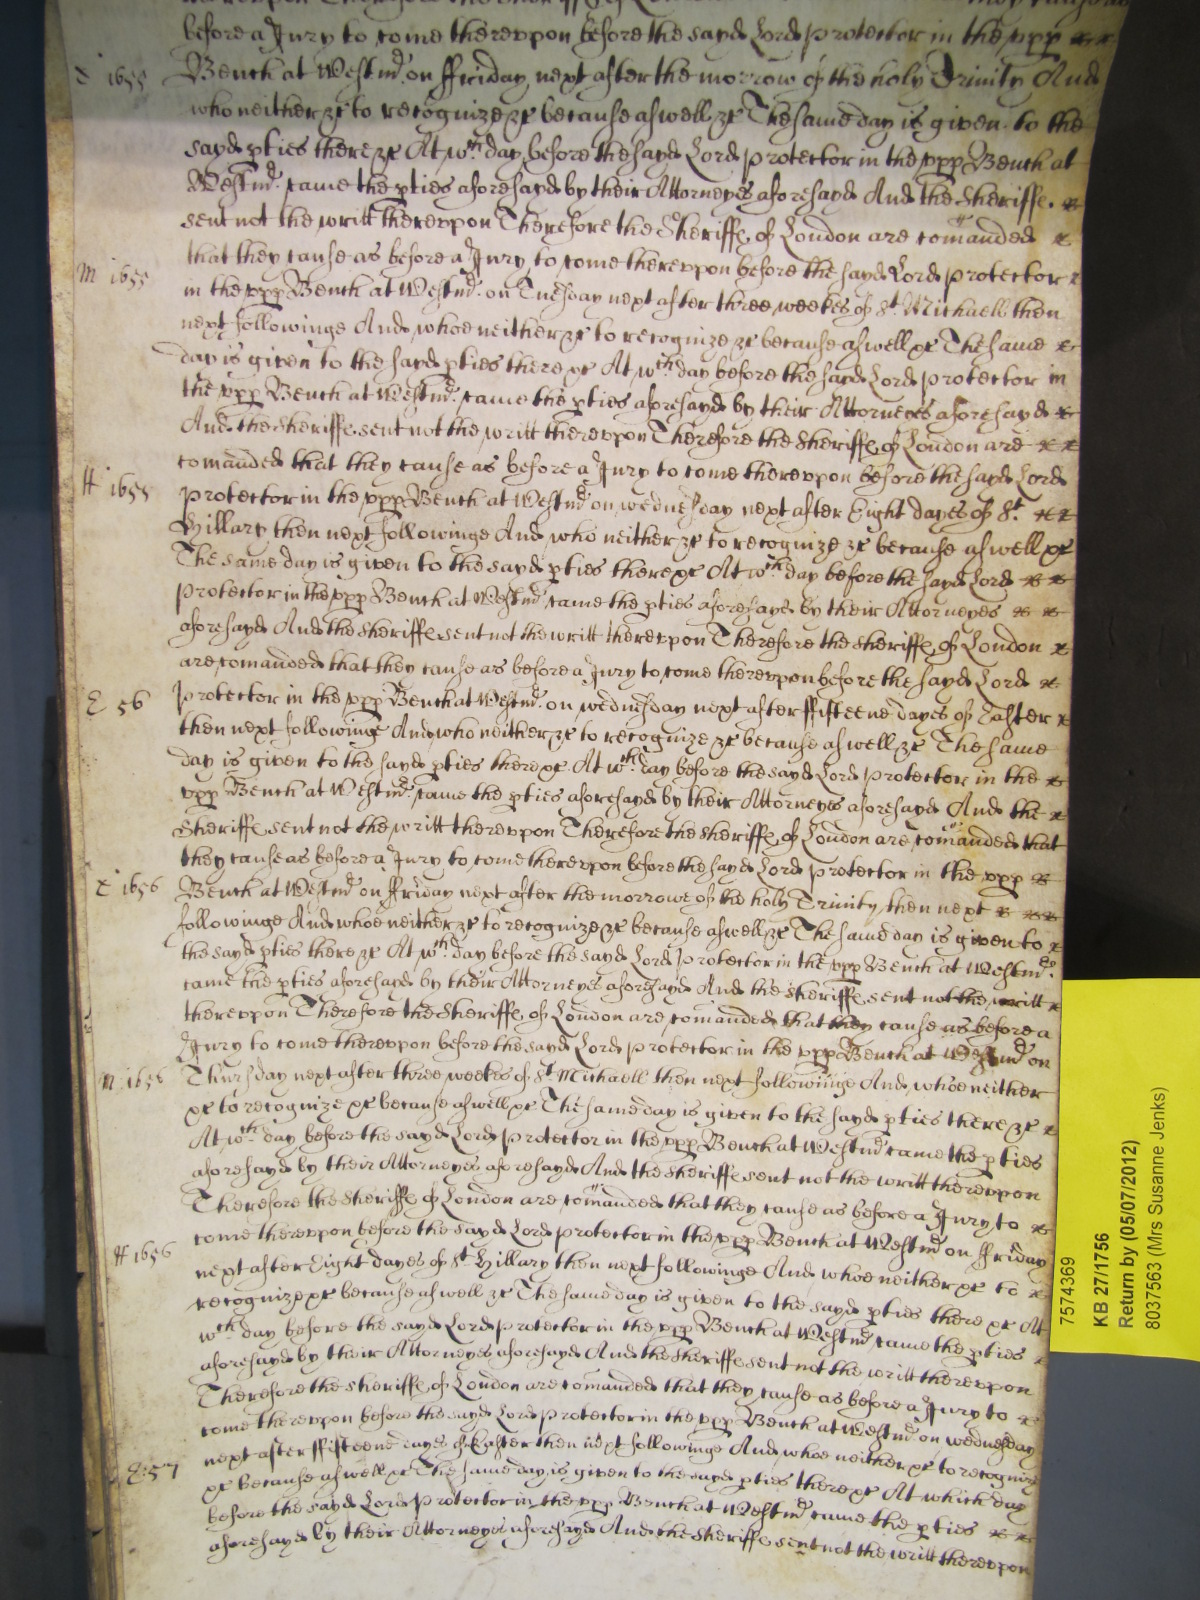 before a Jury to come therevpon before the sayd Lord protector in the vpp
T 1655 Bench at Westmd. on ffriday next after the morrow of the holy Trinity And
who neither &c to recognize &c because aswell &c The same day is given to the
sayd pties there &c At wth. day before the sayd Lord protector in the vpp Bench at
Westmd. came the pties aforesayd by their Attorneyes aforesayd And the Sheriffe
sent not the writt therevpon Therefore the Sheriffe of London are comanded
that they cause as before a Jury to come therevpon before the sayd Lord protector
M 1655 in the vpp Bench at Westmd. on Tuesday next after three weekes of St. Michaell then
next followinge And whoe neither &c to recognize &c because aswell &c The same
day is given to the sayd pties there &c At wth. day before the sayd Lord protector in
the vpp Bench at Westmd. came the pties aforesayd by their Attorneyes aforesayd
And the Sheriffe sent not the writt therevpon Therefore the Sheriffe of London are
comanded that they cause as before a Jury to come therevpon before the sayd Lord
H 1655 protector in the vpp Bench at Westmd on wednesday next after Eight dayes of St.
Hillary then next followinge And who neither &c to recognize &c because aswell &c
The same day is given to the sayd pties there &c At wth. day before the sayd Lord
protector in the vpp Bench at Westmd came the pties aforesayd by their Attorneyes
aforesayd And the Sheriffe sent not the writt therevpon Therefore the Sheriffe of London
are comanded that they cause as before a Jury to come therevpon before the sayd Lord
E 56 protector in the vpp Bench at Westmd. on wednesday next after ffifteene dayes of Easter
then next followinge And who neither &c to recognize &c because aswell &c The same
day is given to the sayd pties there &c At wth. day before the sayd Lord protector in the
vpp Bench at Westmd. came the pties aforesayd by their Attorneyes aforesayd And the
Sheriffe sent not the writt therevpon Therefore the Sheriffe of London are comanded that
they cause as before a Jury to come therevpon before the sayd Lord protector in the vpp
T 1656 Bench at Westmd on ffriday next after the morrowe of the holy Trinity then next
followinge And whoe neither &c to recognize &c because aswell &c The same day is given to
the sayd pties there &c At wth. day before the sayd Lord protector in the vpp Bench at Westmd.
came the pties aforesayd by their Attorneyes aforesayd And the Sheriffe sent not the writt
therevpon Therefore the Sheriffe of London are comanded that they cause as before a
Jury to come therevpon before the sayd Lord protector in the vpp Bench at Westmd on
M 1656 Thursday next after three weekes of St Michaell then next followinge And whoe neither
&c to recognize &c because aswell &c The same day is given to the sayd pties there &c
At wth. day before the sayd Lord protector in the vpp Bench at Westmd came the pties
aforesayd by their Attorneyes aforesayd And the Sheriffe sent not the writt therevpon
Therefore the Sheriffe of London are comanded that they cause as before a Jury to
come therevpon before the sayd Lord protector in the vpp Bench at Westmd on ffriday
H 1656 next after Eight dayes of St. Hillary then next followinge And whoe neither &c to
recognize &c because aswell &c The same day is given to the sayd pties there &c At
wth. day before the sayd Lord protector in the vpp Bench at Westmd came the pties
aforesayd by their Attorneyes aforesayd And the Sheriffe sent not the writt therevpon
Therefore the Sheriffe of London are comanded that they cause as before a Jury to
come therevpon before the sayd Lord protector in the vpp Bench at Westmd on wednesday
E 57 next after ffifteene dayes of Easter then next followinge And whoe neither &c to recognize
&c because aswell &c The same day is given to the sayd pties there &c At which day
before the sayd Lord protector in the vpp Bench at Westmd came the pties
aforesayd by their Attorneyes aforesayd And the Sheriffe sent not the writt therevpon
7574369
KB 27/1756
Return by (05/07/2012)
8037563 (Mrs Susanne Jenks)